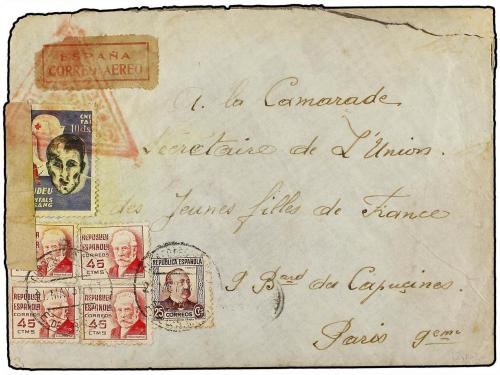 ESPAÑA
CORREO AEREO
10 cts.
A la Camarade
Secrétaire de L'Union
des Jeunes filles de France
9 Bard du Capuçines
Paris 9eme
REPUBLICA
ESPAÑOLA
CORREOS
45
CTMS
REPUBLICA
ESPAÑOLA
CORREOS
45
CTMS
REPUBLICA
ESPAÑOLA
CORREOS
45
CTMS
45
CTMS
REPUBLICA ESPAÑOLA
25 Cts
CORREOS